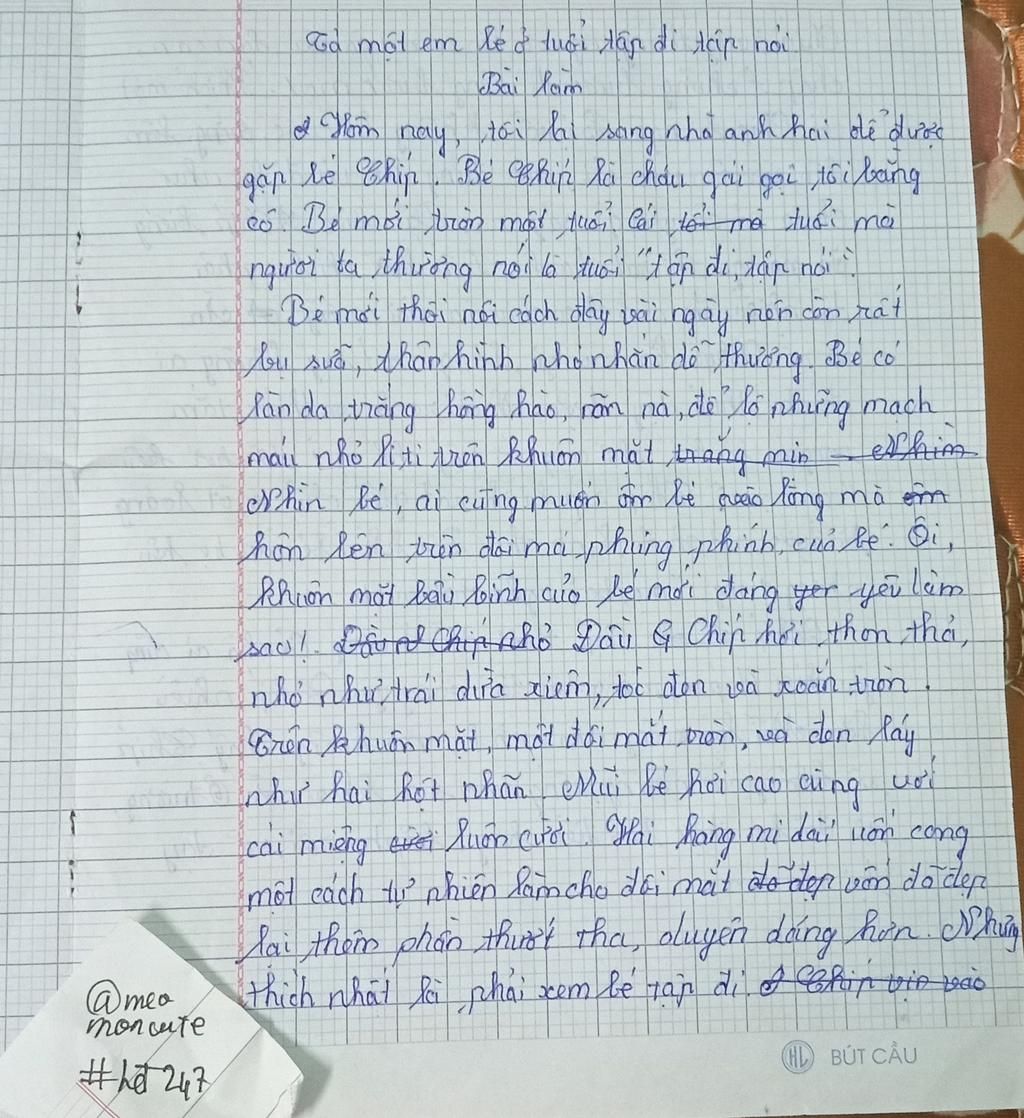 Tả một em bé ở tuổi tập đi tập nói
Bài làm
Hôm nay, tôi lại sang nhà anh hai để được
gặp bé Chíp. Bé Chíp là cháu gái gọi tôi bằng
cô. Bé mới tròn một tuổi. Cái tuổi mà tuổi mà
người ta thường nói là tuổi "tập đi, tập nói".
Bé mới thôi nôi cách đây vài ngày nên còn rất
bụ sữa, thân hình nhỏ nhắn dễ thương. Bé có
làn da trắng hồng hào, nõn nà, để lộ những mạch
máu nhỏ li ti trên khuôn mặt trắng mịn Nhìn
Nhìn bé, ai cũng muốn ôm bé vào lòng mà
hôn lên trên đôi má phúng phính của bé. Ôi,
khuôn mặt bầu bĩnh của bé mới đáng yer yêu làm
sao! Đầu Chíp nhỏ Đầu Chíp hơi thon thả,
nhỏ như trái dừa xiêm, tóc đen và xoăn tròn.
Trên khuôn mặt, một đôi mắt tròn, và đen láy
như hai hột nhãn. Mũi bé hơi cao cùng với
cái miệng cười luôn cười. Hai hàng mi dài uốn cong
một cách tự nhiên làm cho đôi mắt đã đẹp vốn đã đẹp
lại thêm phần thướt tha, duyên dáng hơn. Nhưng
thích nhất là phải xem bé tập đi. Chíp vịn vào
@meo
moncute
#hđ247
HL BÚT CẦU